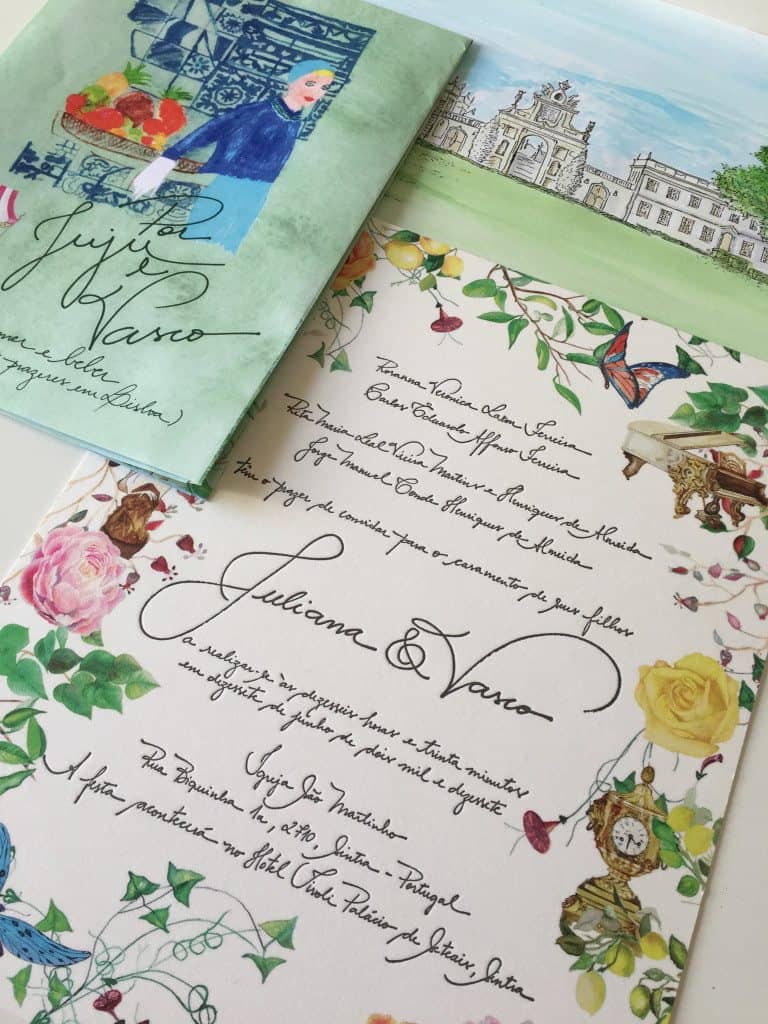 Por
Juju
e
Vasco
e beber
prazeres em Lisboa)
Rosanna Verônica Laem Ferreira
Carlos Eduardo Affonso Ferreira
Rita Maria Leal Vieira Martins e Henriques de Almeida
Jorge Manuel Conde Henriques de Almeida
têm o prazer de convidar para o casamento de seus filhos
Juliana & Vasco
a realizar-se às dezesseis horas e trinta minutos
em dezessete de junho de dois mil e dezessete
Igreja São Martinho
Rua Biquinha 1a, 2710, Sintra - Portugal
A festa acontecerá no Hotel Tivoli Palácio de Seteais, Sintra